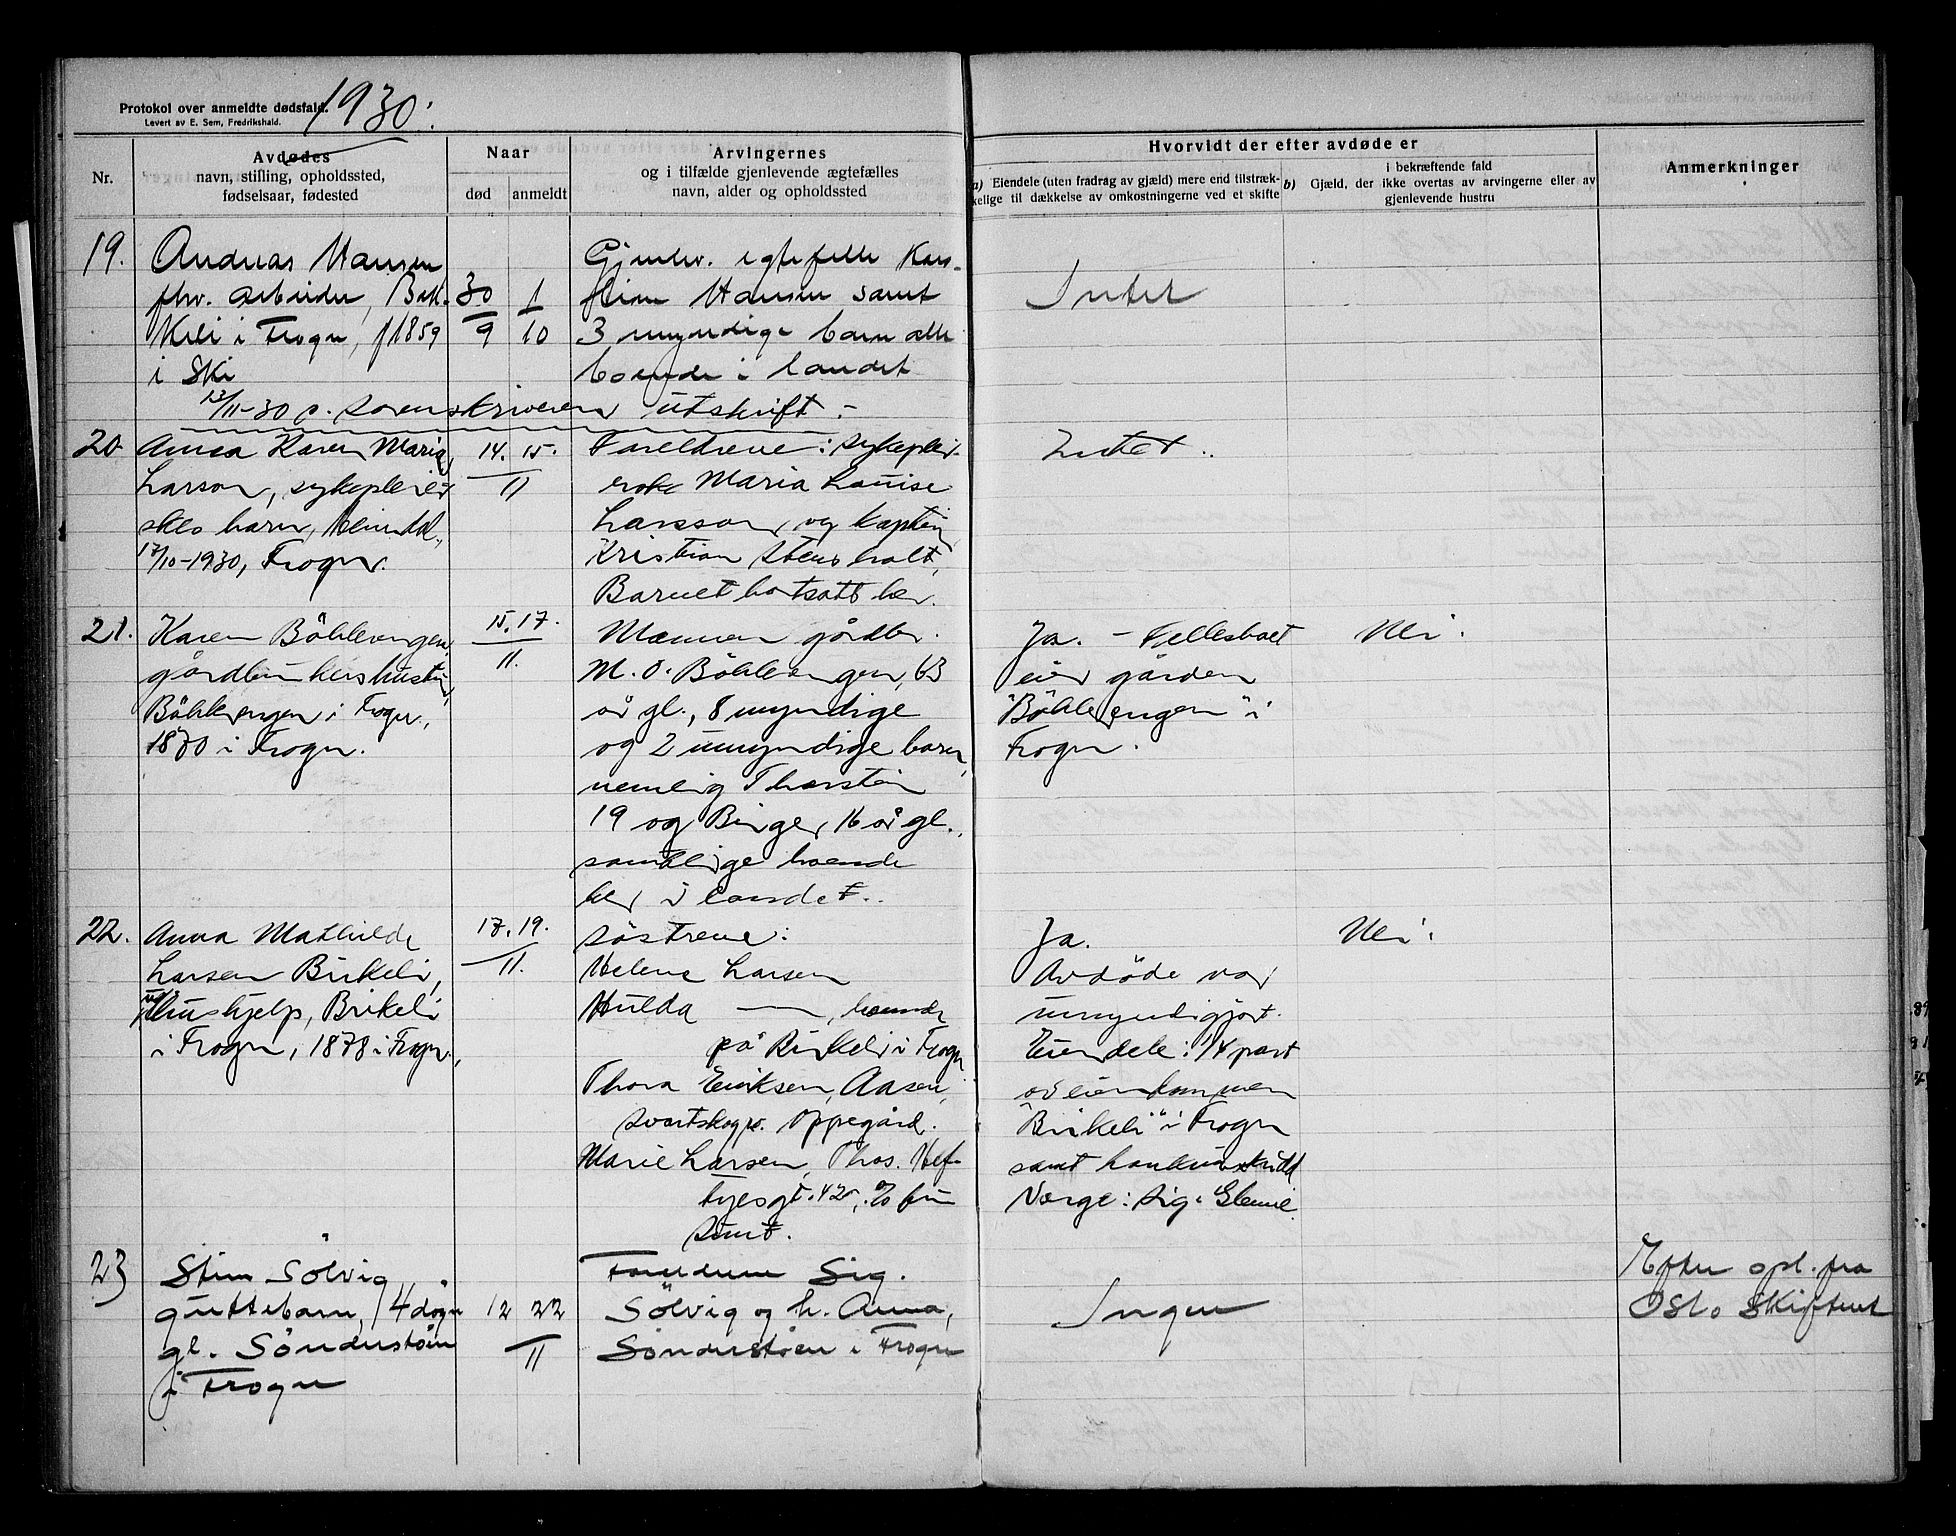 Protokol over anmeldte dødsfald. 1930.
Levert av E. Sem, Fredrikshald.
Nr.
Avdødes
navn, stilling, opholdssted,
fødselsaar, fødested
Naar
død
anmeldt
Arvingernes
og i tilfælde gjenlevende ægtefælles
navn, alder og opholdssted
Hvorvidt der efter avdøde er
a) Eiendele (uten fradrag av gjæld) mere end tilstræk-
kelige til dækkelse av omkostningerne ved et skifte
i bekræftende fald
b) Gjæld, der ikke overtas av arvingerne eller av
gjenlevende hustru
Anmerkninger
19.
Andreas Hansen
fhv. arbeider, Bak-
keli i Frogn, f 1859
i Ski
30/9
1/10
Gjenlev. egtefelle
Hansen samt
3 myndige barn alle
boende i landet
Intet
13/11-30 p. sorenskriveren utskrift.-
20.
Anna Karen Maria
Larson, sykepleier
skes barn,
17/10-1930, Frogn.
14. 15.
11
Foreldrene: sykeplei-
erske Maria Louise
Larsson, og kaptein
Kristian Stensholt,
Barnet bortsatt her.
Intet.
21.
Karen Böhlerengen,
gårdbrukershustru,
Böhlerengen i Frogn,
1870 i Frogn.
15. 17.
11.
Mannen gårdbr.
M. O. Böhlerengen, 63
år gl., 8 myndige
og 2 umyndige barn,
nemlig Thorstein
19 og Birger, 16 år gl.,
samtlige boende
her i landet.
Ja. - Fellesboet
eier gården
"Böhlerengen" i
Frogn.
Nei.
22.
Anna Mathilde
Larsen Birkeli,
ug. hushjelp, Birkeli
i Frogn, 1878 i Frogn.
17. 19.
11.
Söstrene:
Helene Larsen
Hulda — , boende
på Birkeli i Frogn
Thora Eriksen, Aasen,
Svartskog p. Oppegård.
Marie Larsen, Thos. Hef-
tyesgt. 42, c/o fru
Smit.
Ja.
Avdöde var
umyndigjort.
Eiendele: 1/4 part
av eiendommen
"Birkeli" i Frogn
samt bankinnskudd
Verge: Sig.
Nei.
23
Sten Sölvig,
guttebarn, 14 dögn
gl. Sönderstöen
i Frogn
12 22
11
Foreldrene Sig.
Sölvig og h. Anna,
Sönderstöen i Frogn
Ingen
Efter opl. fra
Oslo Skifterett